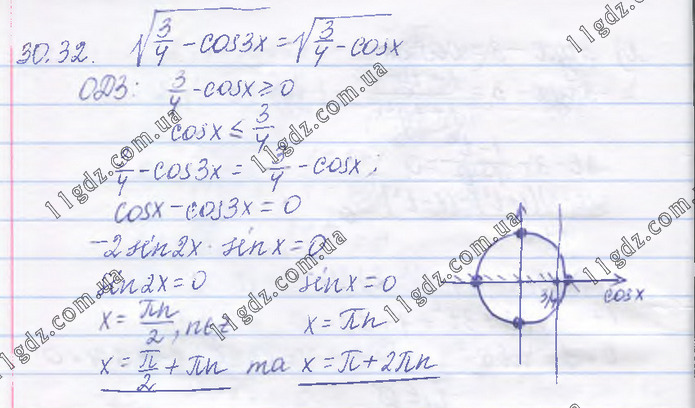 30.32. √(3/4 - cos3x) = √(3/4 - cosx)
ОДЗ: 3/4 - cosx ≥ 0
cosx ≤ 3/4
3/4 - cos3x = 3/4 - cosx;
cosx - cos3x = 0
-2sin2x · sinx = 0
sin2x = 0 sinx = 0
x = πn/2, n∈z x = πn
x = π/2 + πn та x = π + 2πn
3/4
cosx
11gdz.com.ua
11gdz.com.ua
11gdz.com.ua
11gdz.com.ua
11gdz.com.ua
11gdz.com.ua